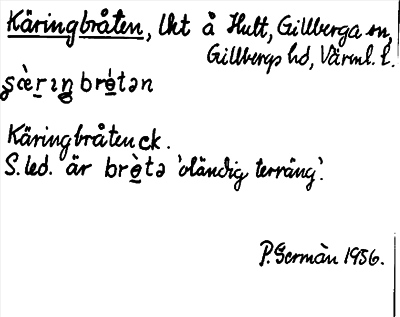 Käringbråten, lkt å Hult, Gillberga sn,
Gillbergs hd, Värml. l.
ʂæ̀rɪŋbrétən
Käringbråten ck.
S. led. är brètə 'oländig terräng'.
P. Germàn 1956.